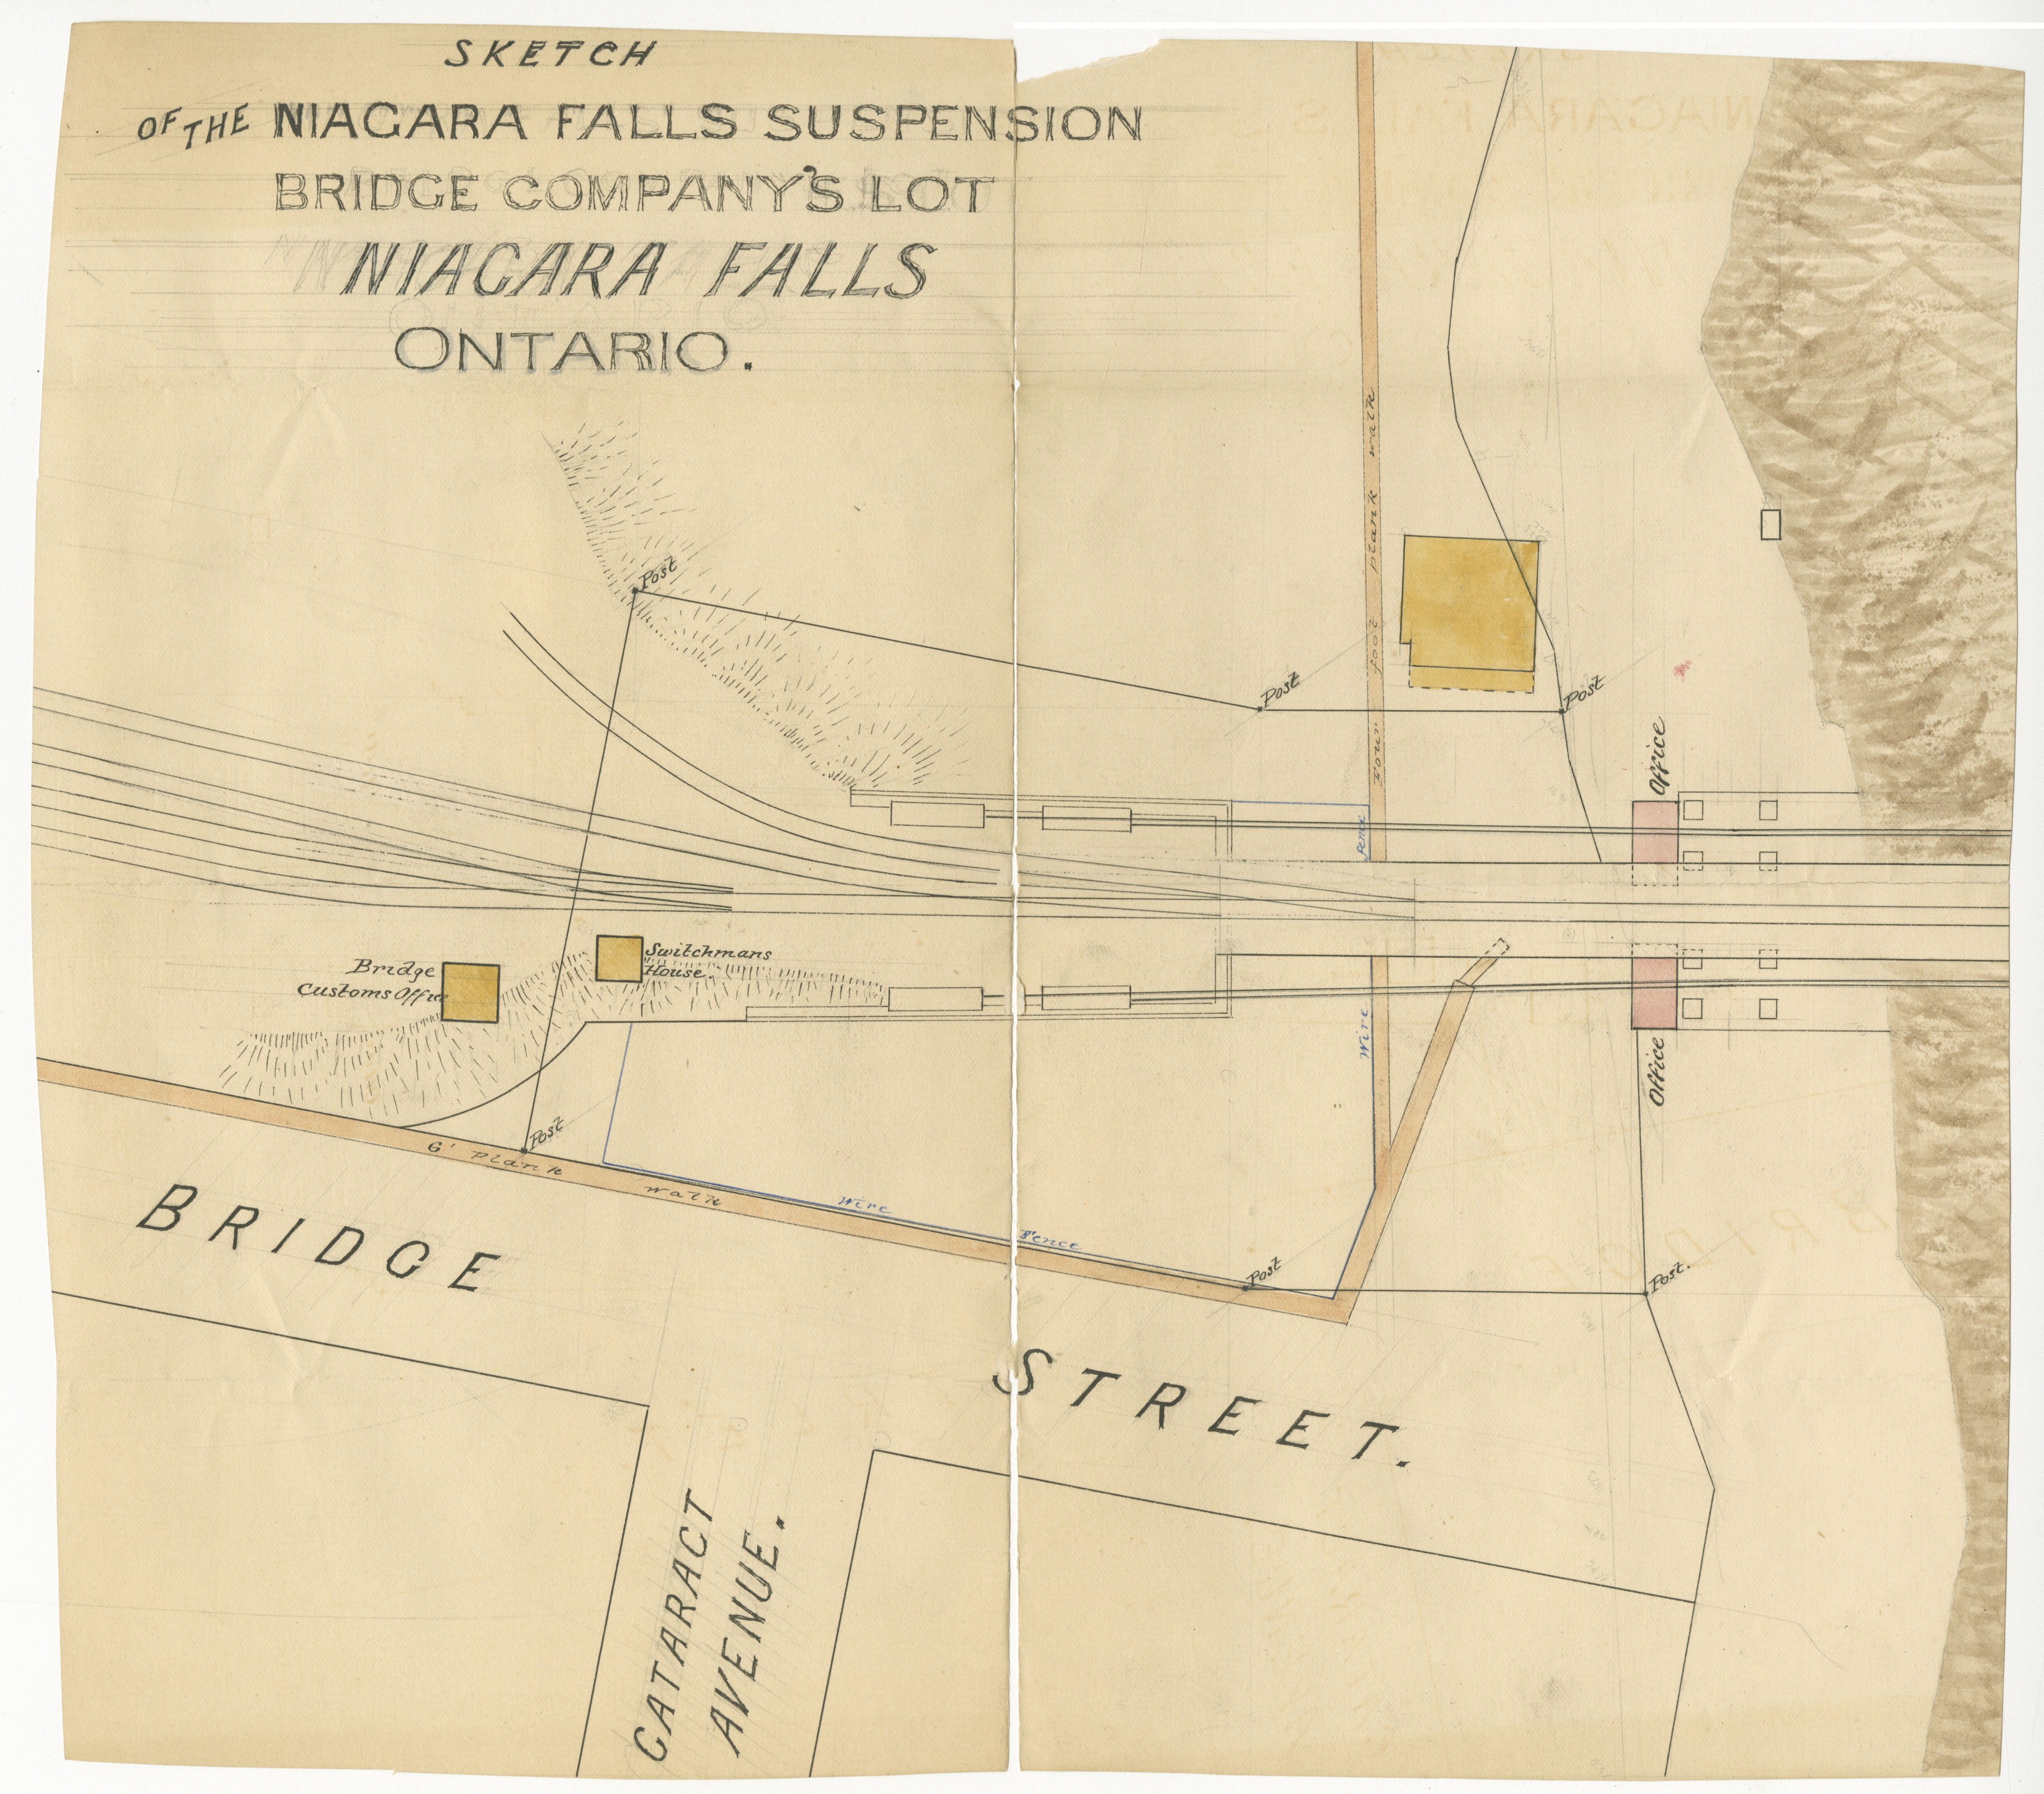 SKETCH
OF THE NIAGARA FALLS SUSPENSION
BRIDGE COMPANY'S LOT
NIAGARA FALLS
ONTARIO.
Four foot plank walk
Post
Post
Post
Office
fence
Switchmans
House.
Bridge
Customs Office
Wire
Office
Post
6' Plank
walk
Wire
fence
Post
Post.
BRIDGE
STREET.
CATARACT
AVENUE.